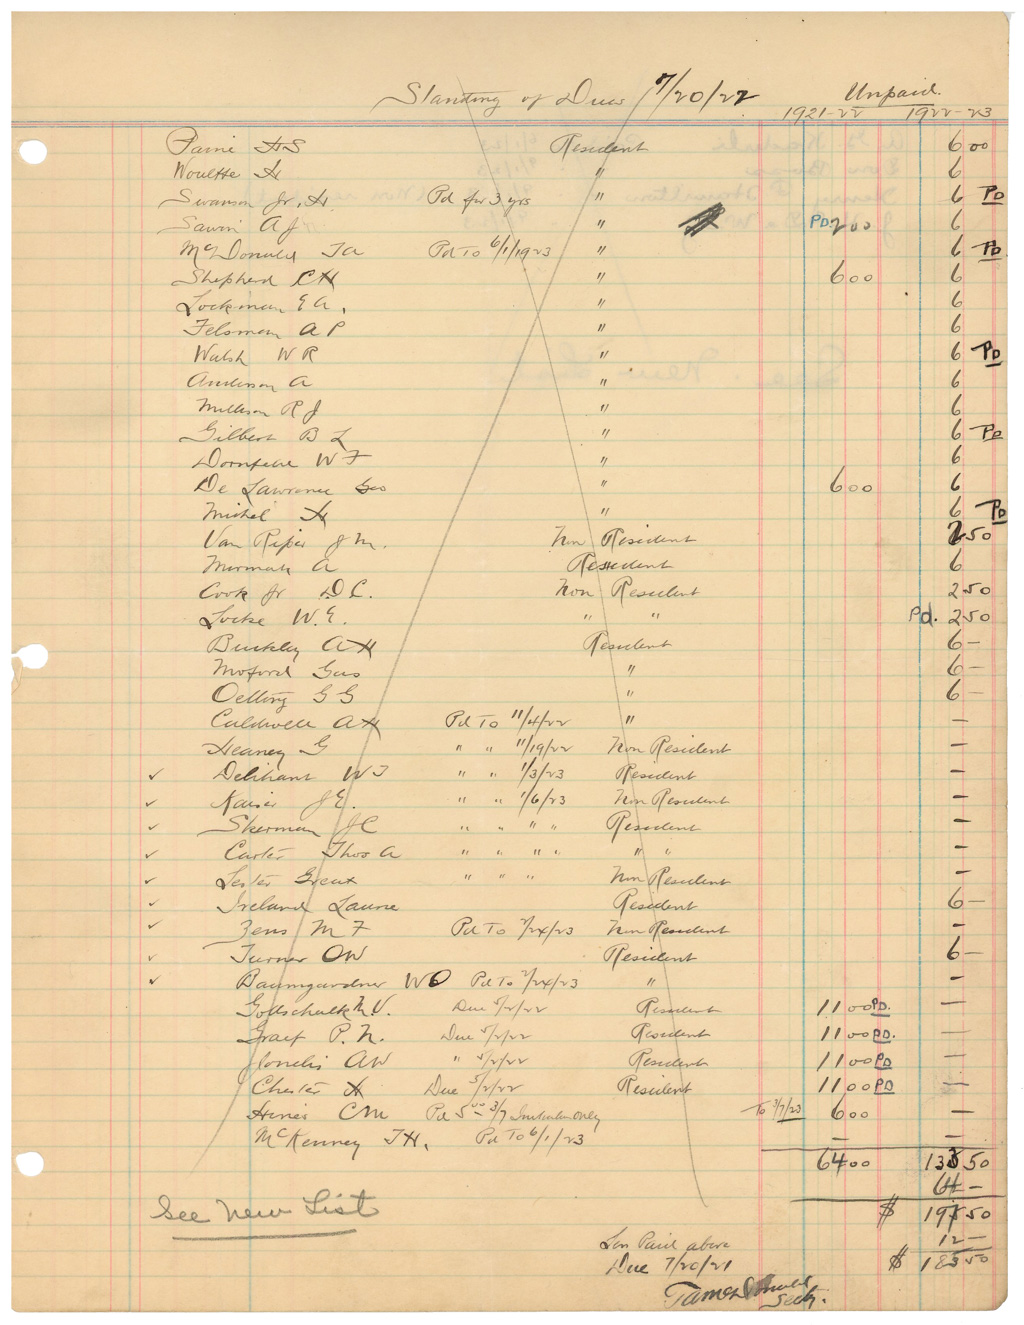 Standing of Dues 7/20/22 Unpaid.
1921-22 1922-23
Paine HS Resident 6 00
Woulffe H " 6
Swanson Jr, H. Pd for 3 yrs " 6 PD
Sawin A J " PD. 2 00 6
McDonald Ja Pd To 6/1/1923 " 6 PD
Shepherd CH " 6 00 6
Lockman E A. " 6
Felsman A P " 6
Walsh W R " 6 PD
Anderson A " 6
Milleson R J " 6
Gilbert B L " 6 PD
W F " 6
De Lawrence Geo " 6 00 6
Michel H " 6 PD
Van Riper J M. Non Resident 2 50
A Resident 6
Cook Jr D.C. Non Resident 2 50
Locke W.E. " " Pd. 2 50
Buckley A H Resident 6 -
Moford Gus " 6 -
Oelting G G " 6 -
Caldwell A H Pd To 11/4/22 " -
Heaney G " " 11/19/22 Non Resident -
✓ Delihant W J " " 1/3/23 Resident -
✓ Kaiser J E. " " 1/6/23 Non Resident -
✓ Skerman J C " " " " Resident -
✓ Carter Thos A " " " " " " -
✓ Lester Grant " " " Non Resident -
✓ Ireland Laurie Resident 6 -
✓ Zens M F Pd To 2/24/23 Non Resident -
✓ Turner OW Resident 6 -
✓ Baumgardner WO Pd To 2/24/23 " -
Godschalk M.V. Due 5/2/22 Resident 11 00 PD. -
Graef P. N. Due 5/2/22 Resident 11 00 PD. -
AW " 5/2/22 Resident 11 00 PD -
Chester H Due 5/2/22 Resident 11 00 PD -
Hines CM Pd 5 00 3/7 Initiation only To 3/7/23 6 00 -
McKenney J H. Pd To 6/1/23 - -
64 00 133 50
64 -
See New List $ 197 50
12 -
Less Paid above
Due 7/20/21 $ 185 50
Secty.